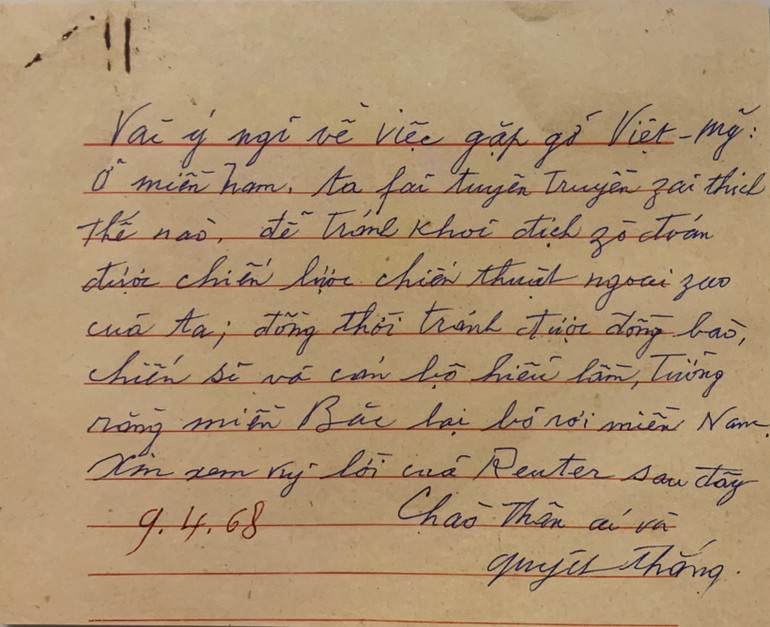 Vài ý ngĩ về việc gặp gỡ Việt-Mỹ:
Ở miền Nam, ta fải tuyên truyền zải thích
thế nào, để tránh khỏi địch zò đoán
được chiến lược chiến thuật ngoại zao
của ta; đồng thời tránh được đồng bào,
chiến sĩ và cán bộ hiểu lầm, tưởng
rằng miền Bắc lại bỏ rơi miền Nam.
Xin xem kỹ lời của Reuter sau đây
9.4.68 Chào thân ái và
quyết thắng.